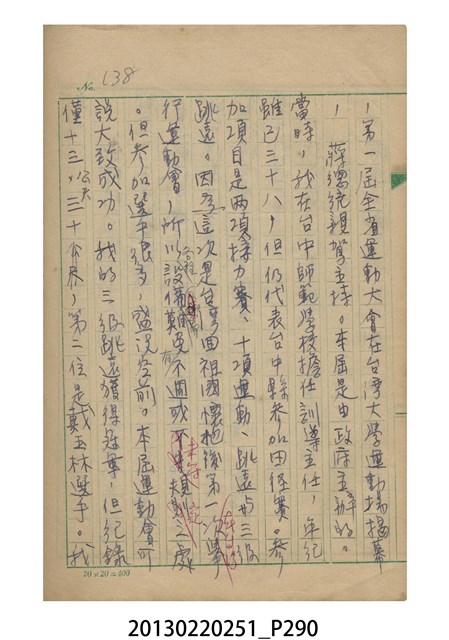 No. 138
，第一屆全省運動大會在台灣大學運動場揭幕
，蔣總統親駕主持。本屆是由政府主辦的。
當時，我在台中師範學校擔任訓導主任，年紀
雖已三十八，但仍代表台中縣參加田徑賽。參
加項目是兩項採力賽、十項運動、跳遠與三級
跳遠。因為這次是台灣回祖國懷抱後第一次舉
行運動會，所以設備難免不週或不規則之處
。但參加選手很多，盛況空前。本屆運動會可
說大致成功。我的三級跳遠獲得冠軍，但紀錄
僅十三．公尺三十公分，第二位是戴玉林選手。我
20×20=400
20130220251_P290